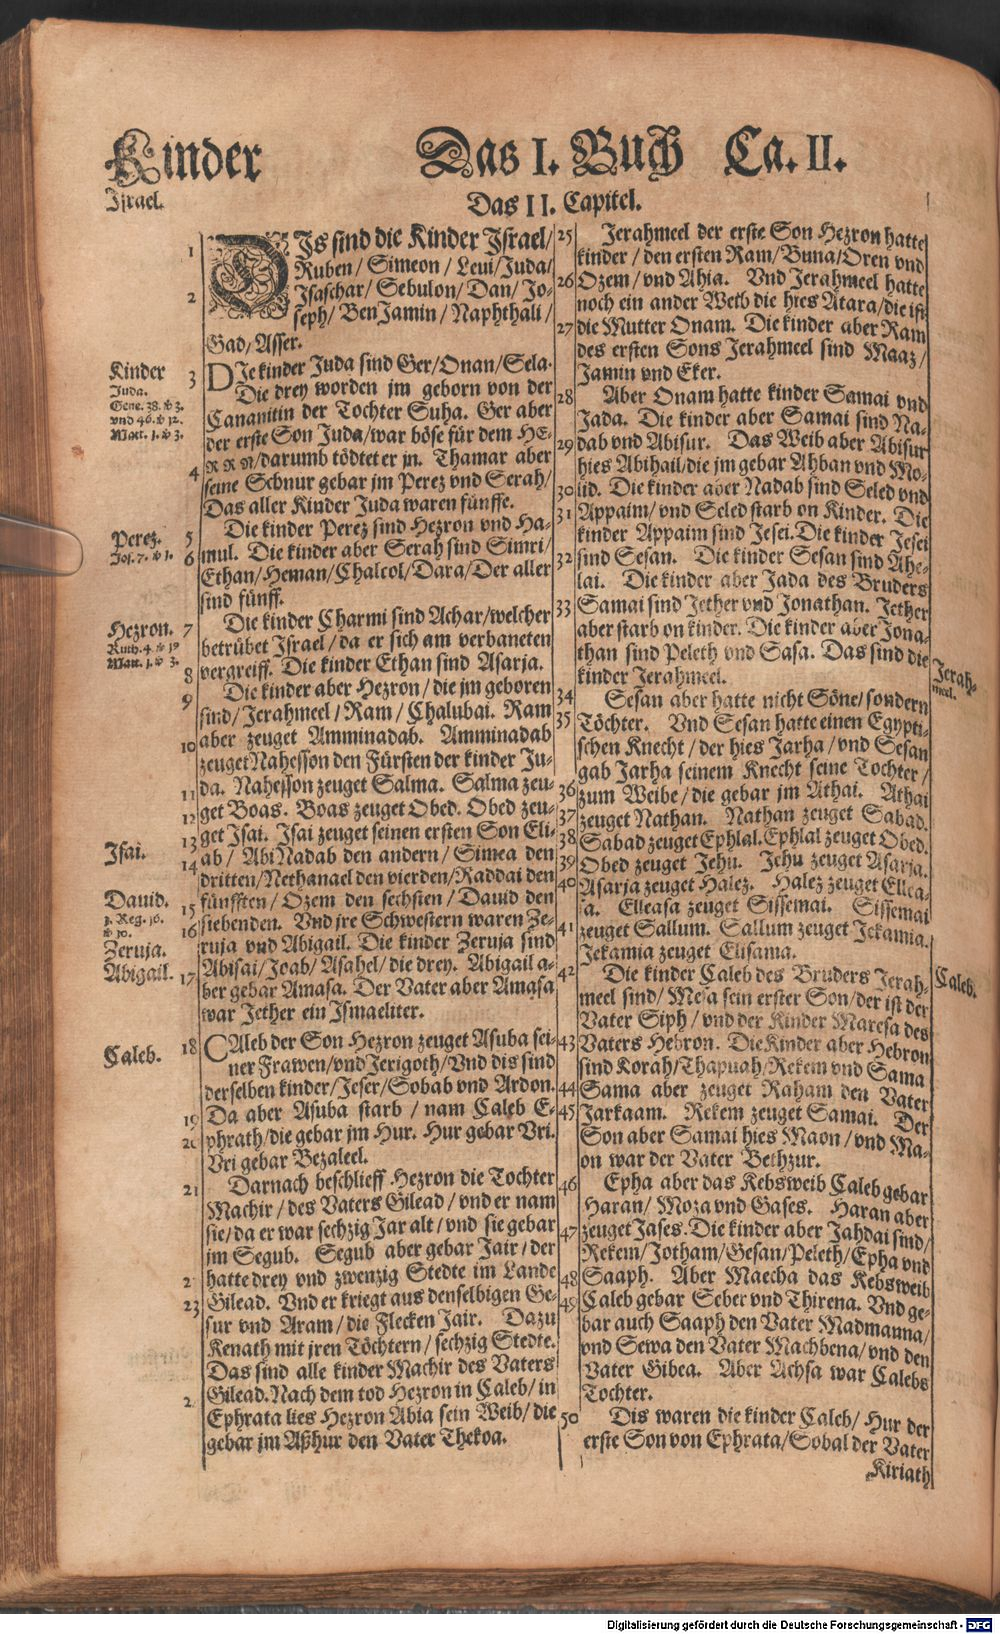 Kinder Das I. Buch Ca. II.
Israel.
Das II. Capitel.
1
DIs sind die Kinder Israel/
Ruben/ Simeon/ Leui/ Juda/
2
Isaschar/ Sebulon/ Dan/ Jo-
seph/ BenJamin/ Naphthali/
Gad/ Asser.
Kinder
Juda.
Gene. 38. & 3.
vnd 46. & 12.
Matt. 1. & 3.
3
DJe kinder Juda sind Ger/ Onan/ Sela.
Die drey worden jm geborn von der
Cananitin der Tochter Suha. Ger aber
der erste Son Juda/ war böse für dem HE-
RRN/ darumb tödtet er jn. Thamar aber
4
seine Schnur gebar jm Perez vnd Serah/
Das aller Kinder Juda waren fünffe.
Perez.
Jos. 7. & 1.
5
Die kinder Perez sind Hezron vnd Ha-
6
mul. Die kinder aber Serah sind Simri/
Ethan/ Heman/ Chalcol/ Dara/ Der aller
sind fünff.
Hezron.
Ruth. 4. & 19
Matt. 1. & 3.
7
Die kinder Charmi sind Achar/ welcher
betrübet Israel/ da er sich am verbaneten
8
vergreiff. Die kinder Ethan sind Asarja.
9
Die kinder aber Hezron/ die jm geboren
sind/ Jerahmeel/ Ram/ Chalubai. Ram
10
aber zeuget Amminadab. Amminadab
zeuget Nahesson den Fürsten der kinder Ju-
11
da. Nahesson zeuget Salma. Salma zeu-
12
get Boas. Boas zeuget Obed. Obed zeu-
13
get Isai. Isai zeuget seinen ersten Son Eli-
Isai.
ab/ AbiNadab den andern/ Simea den
14
dritten/ Nethanael den vierden/ Raddai den
Dauid.
1. Reg. 16.
& 10.
15
fünfften/ Ozem den sechsten/ Dauid den
16
siebenden. Vnd jre Schwestern waren Ze-
Zeruja.
ruja vnd Abigail. Die kinder Zeruja sind
Abigail.
17
Abisai/ Joab/ Asahel/ die drey. Abigail a-
ber gebar Amasa. Der Vater aber Amasa
war Jether ein Ismaeliter.
Caleb.
18
CAleb der Son Hezron zeuget Asuba sei-
ner Frawen/ vnd Jerigoth/ Vnd dis sind
derselben kinder/ Jeser/ Sobab vnd Ardon.
19
Da aber Asuba starb/ nam Caleb E-
20
phrath/ die gebar jm Hur. Hur gebar Vri.
Vri gebar Bezaleel.
21
Darnach beschlieff Hezron die Tochter
Machir/ des Vaters Gilead/ vnd er nam
sie/ da er war sechzig Jar alt/ vnd sie gebar
jm Segub. Segub aber gebar Jair/ der
2
hatte drey vnd zwenzig Stedte im Lande
23
Gilead. Vnd er kriegt aus denselbigen Ge-
sur vnd Aram/ die Flecken Jair. Dazu
Kenath mit jren Töchtern/ sechzig Stedte.
Das sind alle kinder Machir des Vaters
2
Gilead. Nach dem tod Hezron in Caleb/ in
Ephrata lies Hezron Abia sein Weib/ die
gebar jm Aßhur den Vater Thekoa.
25
Jerahmeel der erste Son Hezron hatte
kinder/ den ersten Ram/ Buna/ Oren vnd
26
Ozem/ vnd Ahia. Vnd Jerahmeel hatte
noch ein ander Weib die hies Atara/ die ist
27
die Mutter Onam. Die kinder aber Ram
des ersten Sons Jerahmeel sind Maaz/
Jamin vnd Eker.
28
Aber Onam hatte kinder Samai vnd
Jada. Die kinder aber Samai sind Na-
29
dab vnd Abisur. Das Weib aber Abisur
hies Abihail/ die jm gebar Ahban vnd Mo-
30
lid. Die kinder aber Nadab sind Seled vnd
31
Appaim/ vnd Seled starb on Kinder. Die
kinder Appaim sind Jesei. Die kinder Jesei
32
sind Sesan. Die kinder Sesan sind Ahe-
lai. Die kinder aber Jada des Bruders
33
Samai sind Jether vnd Jonathan. Jether
aber starb on kinder. Die kinder aber Jona-
than sind Peleth vnd Sasa. Das sind die
kinder Jerahmeel.
Jerah-
meel.
34
Sesan aber hatte nicht Söne/ sondern
35
Töchter. Vnd Sesan hatte einen Egypti-
schen Knecht/ der hies Jarha/ vnd Sesan
gab Jarha seinem Knecht seine Tochter/
36
zum Weibe/ die gebar jm Athai. Athai
37
zeuget Nathan. Nathan zeuget Sabad.
38
Sabad zeuget Ephlal. Ephlal zeuget Obed.
39
Obed zeuget Jehu. Jehu zeuget Asarja.
40
Asarja zeuget Halez. Halez zeuget Ellea-
sa. Elleasa zeuget Sissemai. Sissemai
41
zeuget Sallum. Sallum zeuget Jekamia.
Jekamia zeuget Elisama.
42
Die kinder Caleb des Bruders Jerah-
Caleb.
meel sind/ Mesa sein erster Son/ der ist der
Vater Siph/ vnd der Kinder Maresa des
43
Vaters Hebron. Die Kinder aber Hebron
sind Korah/ Thapuah/ Rekem vnd Sama
44
Sama aber zeuget Raham den Vater
45
Jarkaam. Rekem zeuget Samai. Der
Son aber Samai hies Maon/ vnd Ma-
on war der Vater Bethzur.
46
Epha aber das Kebsweib Caleb gebar
Haran/ Moza vnd Gases. Haran aber
47
zeuget Jases. Die kinder aber Jahdai sind/
Rekem/ Jotham/ Gesan/ Peleth/ Epha vnd
48
Saaph. Aber Maecha das Kebsweib
49
Caleb gebar Seber vnd Thirena. Vnd ge-
bar auch Saaph den Vater Madmanna/
vnd Sewa den Vater Machbena/ vnd den
Vater Gibea. Aber Achsa war Calebs
Tochter.
50
Dis waren die kinder Caleb/ Hur der
erste Son von Ephrata/ Sobal der Vater
Kiriath
Digitalisierung gefördert durch die Deutsche Forschungsgemeinschaft - DFG